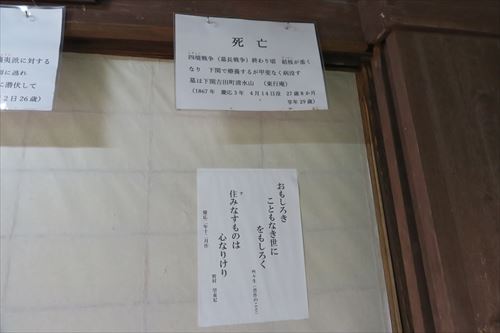 死亡
四境戦争（幕長戦争）終わり頃　結核が重く
なり　下関で療養するが甲斐なく病没す
墓は下関吉田町清水山　（東行庵）
（1867年　慶応3年　4月14日没　27歳8か月
享年29歳）
対する
に逃れ
に潜伏して
2日26歳）
おもしろき
こともなき世に
をもしろく
住みなすものは
心なりけり
慶応二年十一月作
野村